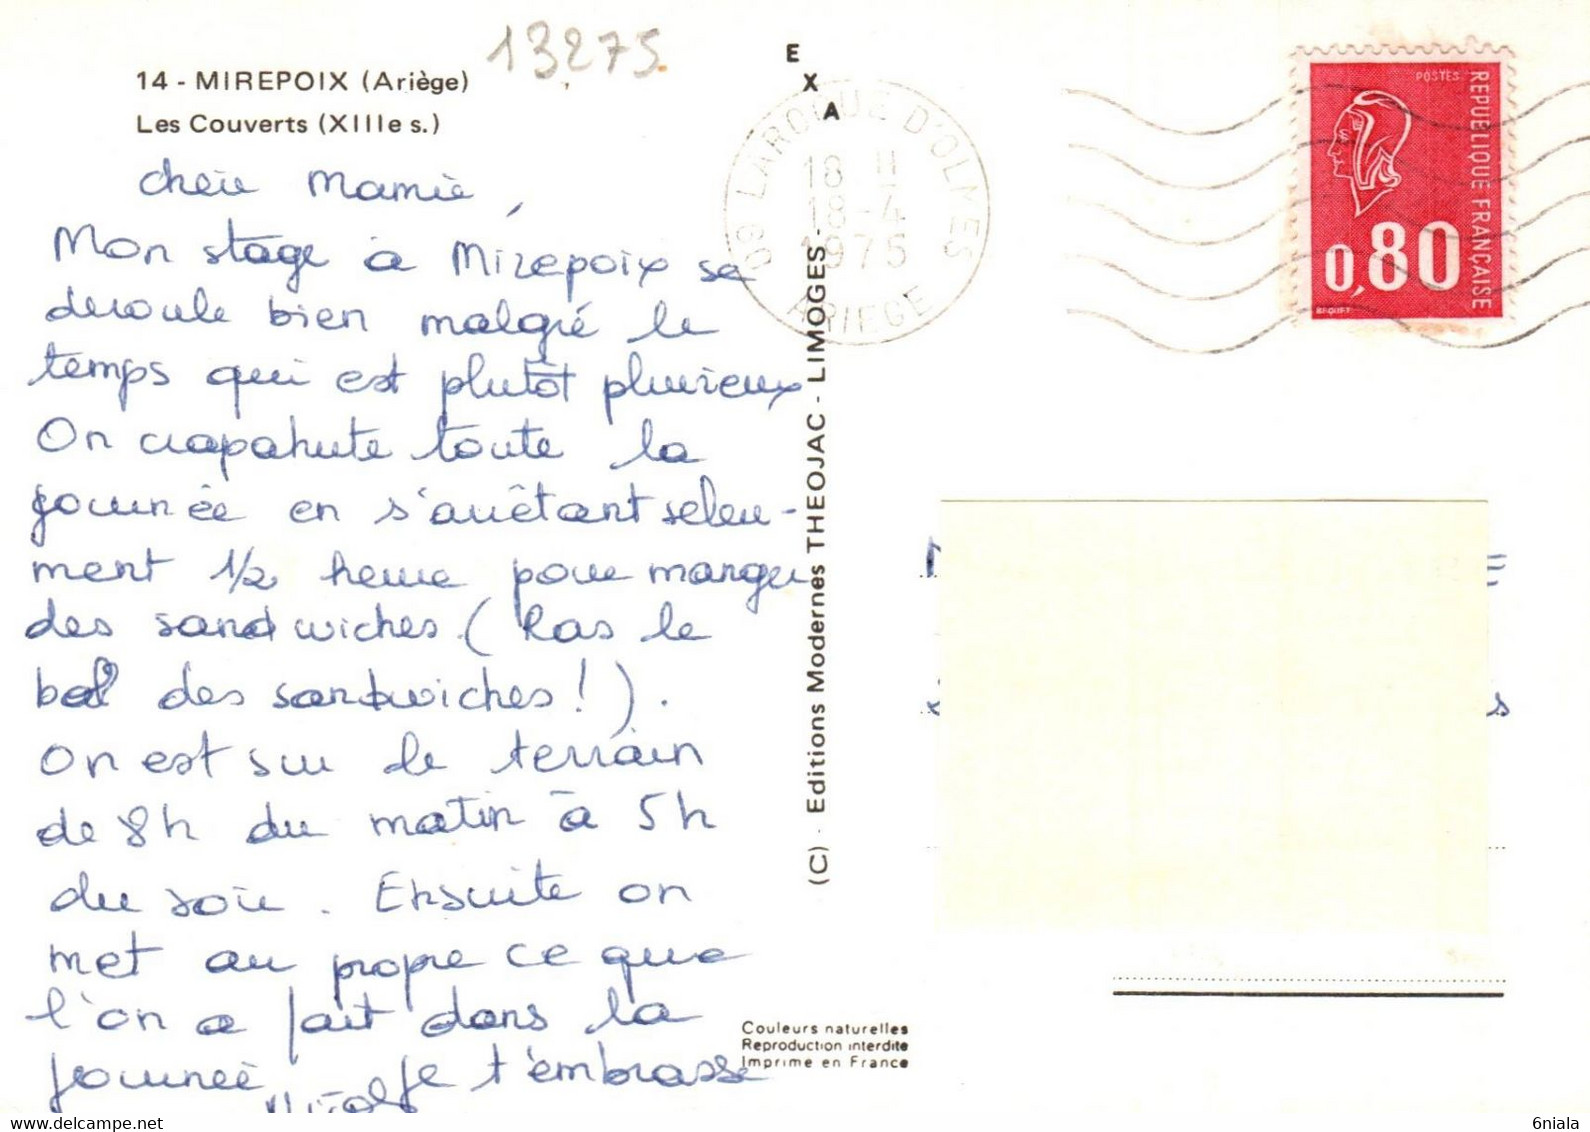 13275
14 - MIREPOIX (Ariège)
Les Couverts (XIIIe s.)
chère Mamie,
Mon stage à Mirepoix se
déroule bien malgré le
temps qui est plutôt pluvieux
On crapahute toute la
journée en s'arrêtant seleu-
ment 1/2 heure pour manger
des sandwiches (Ras le
bol des sandwiches!).
On est sur le terrain
de 8h du matin à 5h
du soir. Ensuite on
met au propre ce que
l'on a fait dans la
journée Je t'embrasse
EXA
(C) - Editions Modernes THEOJAC - LIMOGES -
Couleurs naturelles
Reproduction interdite
Imprimé en France
09 LAROQUE D'OLMES
18 H
18-4
1975
ARIEGE
POSTES
REPUBLIQUE FRANÇAISE
0,80
BEQUET
6niala